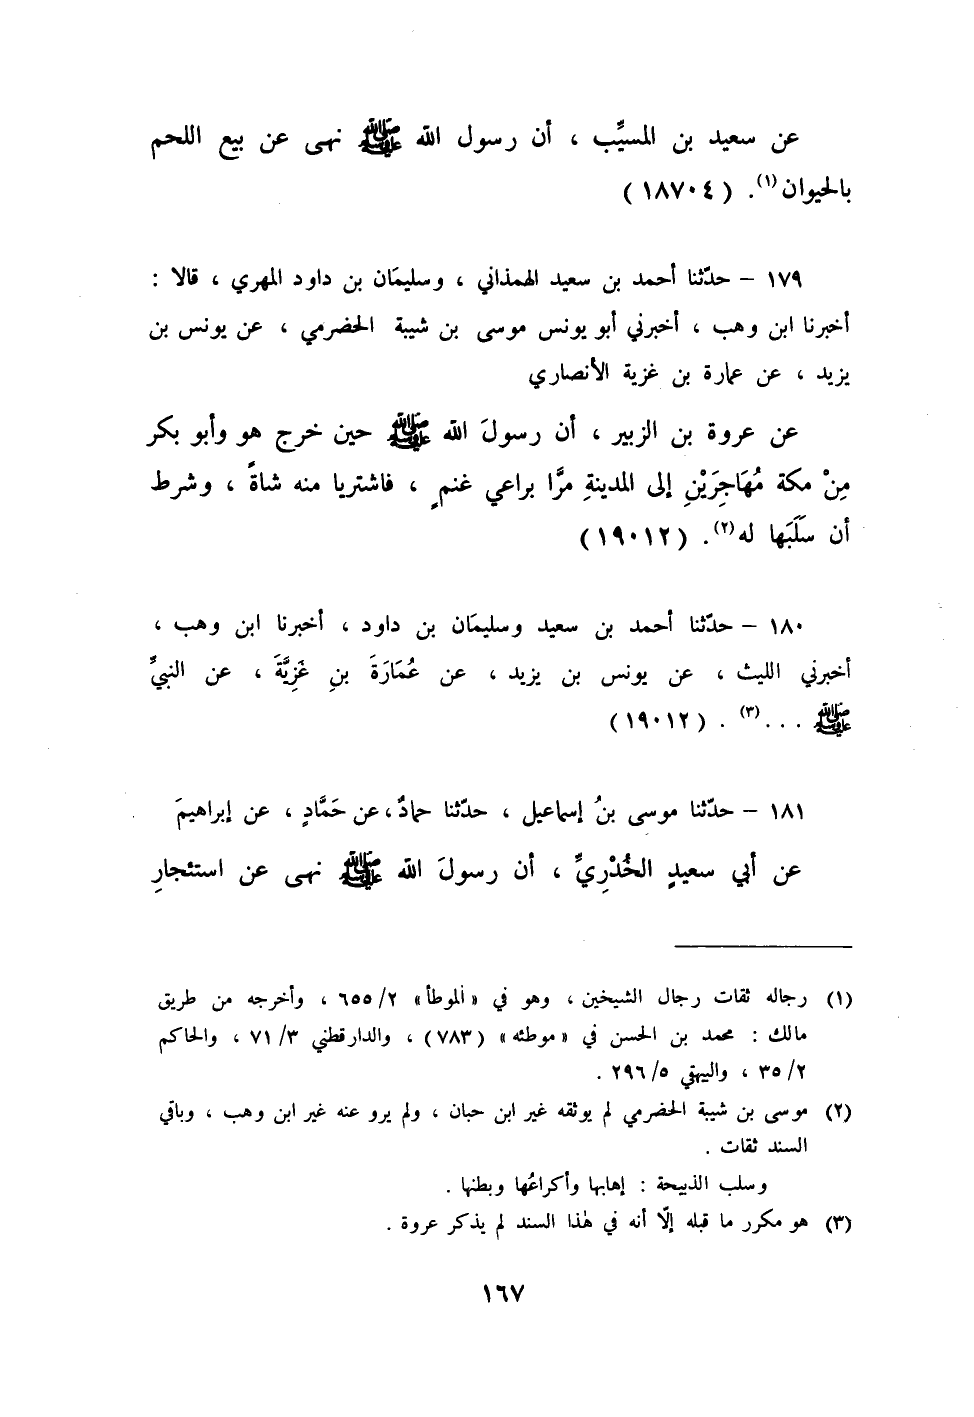 عن سعيد بن المسيِّب ، أن رسول الله ﷺ نهى عن بيع اللحم
بالحيوان(١). (١٨٧٠٤)
١٧٩ – حدّثنا أحمد بن سعيد الهمذاني ، وسليمَان بن داود المهري ، قالا :
أخبرنا ابن وهب ، أخبرني أبو يونس موسى بن شيبة الحضرمي ، عن يونس بن
يزيد ، عن عمارة بن غزية الأنصاري
عن عروة بن الزبير ، أن رسولَ الله ﷺ حين خرج هو وأبو بكر
مِنْ مكة مُهَاجِرَيْنِ إلى المدينةِ مرَّا براعي غنمٍ ، فاشتريا منه شاةً ، وشرط
أن سَلَبَها له(٢). (١٩٠١٢)
١٨٠ – حدّثنا أحمد بن سعيد وسليمَان بن داود ، أخبرنا ابن وهب ،
أخبرني الليث ، عن يونس بن يزيد ، عن عُمَارَةَ بنِ غَزِيَّةَ ، عن النبيِّ
ﷺ . . .(٣) . (١٩٠١٢)
١٨١ – حدّثنا موسى بنُ إسماعيل ، حدّثنا حمادٌ، عن حَمَّادٍ ، عن إبراهيمَ
عن أبي سعيدٍ الخُدْرِيِّ ، أن رسولَ الله ﷺ نهى عن استئجارِ
(١) رجاله ثقات رجال الشيخين ، وهو في «الموطأ» ٦٥٥/٢ ، وأخرجه من طريق
مالك : محمد بن الحسن في «موطئه» (٧٨٣) ، والدارقطني ٧١/٣ ، والحاكم
٣٥/٢ ، والبيهقي ٢٩٦/٥ .
(٢) موسى بن شيبة الحضرمي لم يوثقه غير ابن حبان ، ولم يرو عنه غير ابن وهب ، وباقي
السند ثقات .
وسلب الذبيحة : إهابها وأكراعُها وبطنها .
(٣) هو مكرر ما قبله إلّا أنه في هٰذا السند لم يذكر عروة .
١٦٧